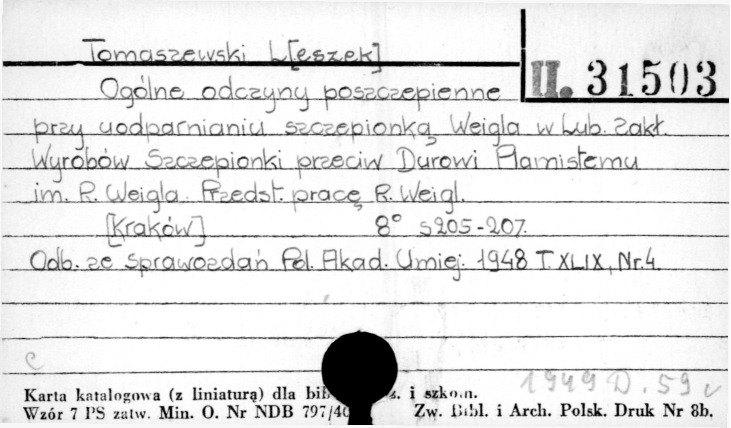 Tomaszewski L[eszek]
II. 31503
Ogólne odczyny poszczepienne
przy uodparnianiu szczepionką Weigla w Lub. Zakł.
Wyrobów Szczepionki przeciw Durowi Plamistemu
im. R. Weigla. Przedst. pracę R. Weigl.
[Kraków] 8° s 205-207.
Odb. ze Sprawozdań Pol. Akad. Umiej. 1948 T. XLIX, Nr. 4.
e
1949 D. 59
Karta katalogowa (z liniaturą) dla i szkoln.
Wzór 7 PS zatw. Min. O. Nr NDB 797/40 Zw. Bibl. i Arch. Polsk. Druk Nr 8b.